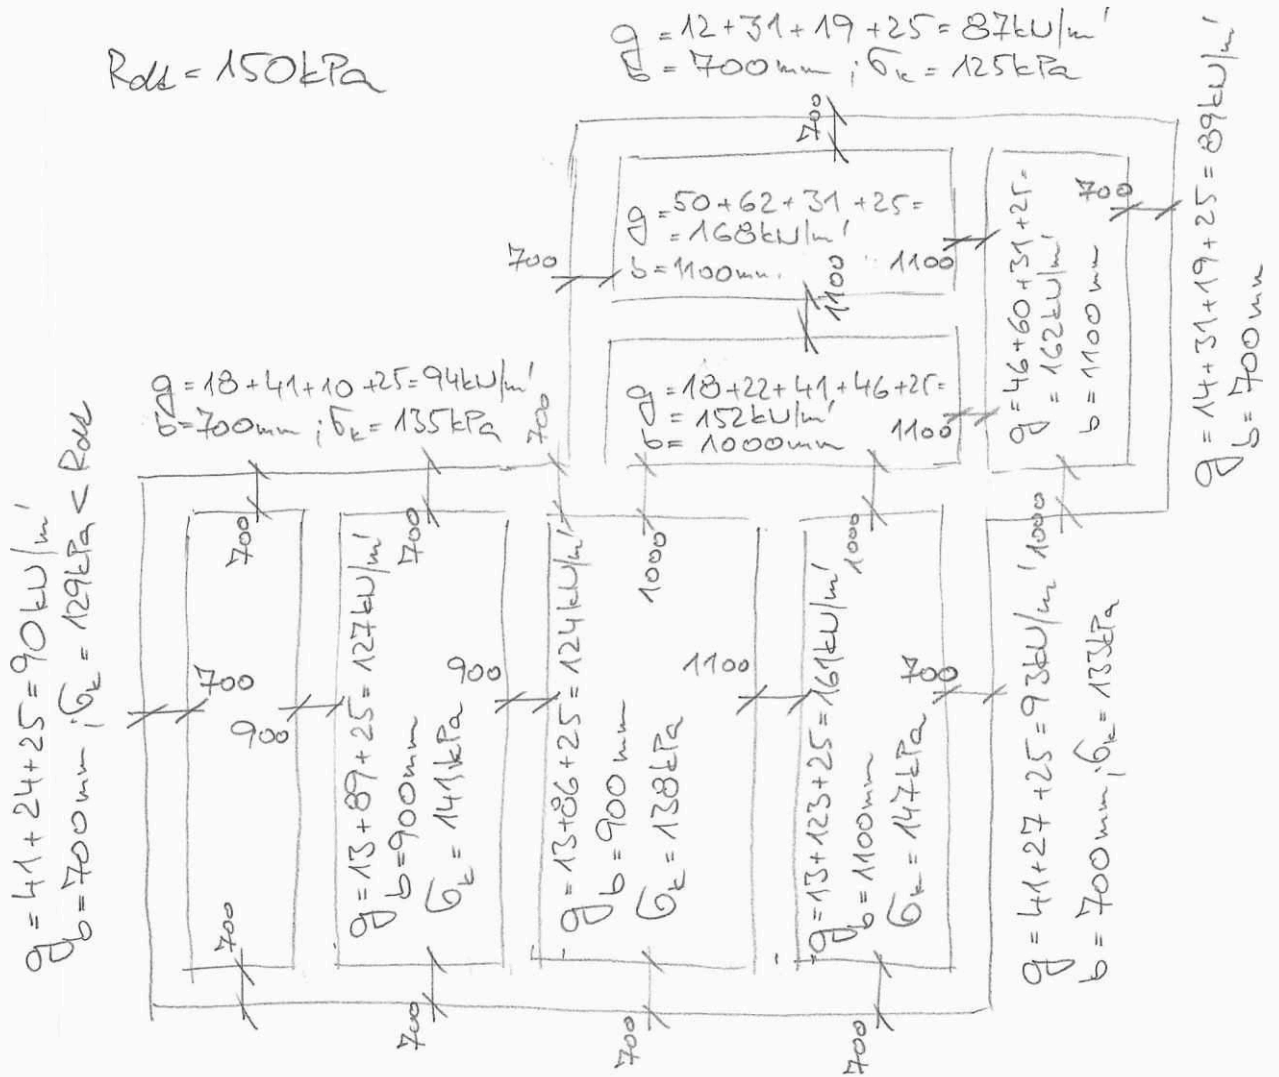 Rdd = 150kPa
g = 12+31+19+25 = 87kN/m'
b = 700mm ; σk = 125kPa
700
g = 14+31+19+25 = 89kN/m'
b = 700mm
g = 50+62+31+25 =
= 168kN/m'
b = 1100mm.
700
1100
1100
700
g = 46+60+31+25 =
= 162kN/m'
b = 1100mm
g = 18+41+10+25 = 94kN/m'
b = 700mm ; σk = 135kPa
700
g = 18+22+41+46+25 =
= 152kN/m'
b = 1000mm
1100
g = 41+24+25 = 90kN/m'
b = 700mm ; σk = 129kPa < Rdd
700
700
1000
1000
1000
700
900
g = 13+89+25 = 127kN/m'
b = 900mm
σk = 141kPa
900
g = 13+86+25 = 124kN/m'
b = 900mm
σk = 138kPa
1100
g = 13+123+25 = 161kN/m'
b = 1100mm
σk = 147kPa
700
g = 41+27+25 = 93kN/m'
b = 700mm ; σk = 133kPa
700
700
700
700